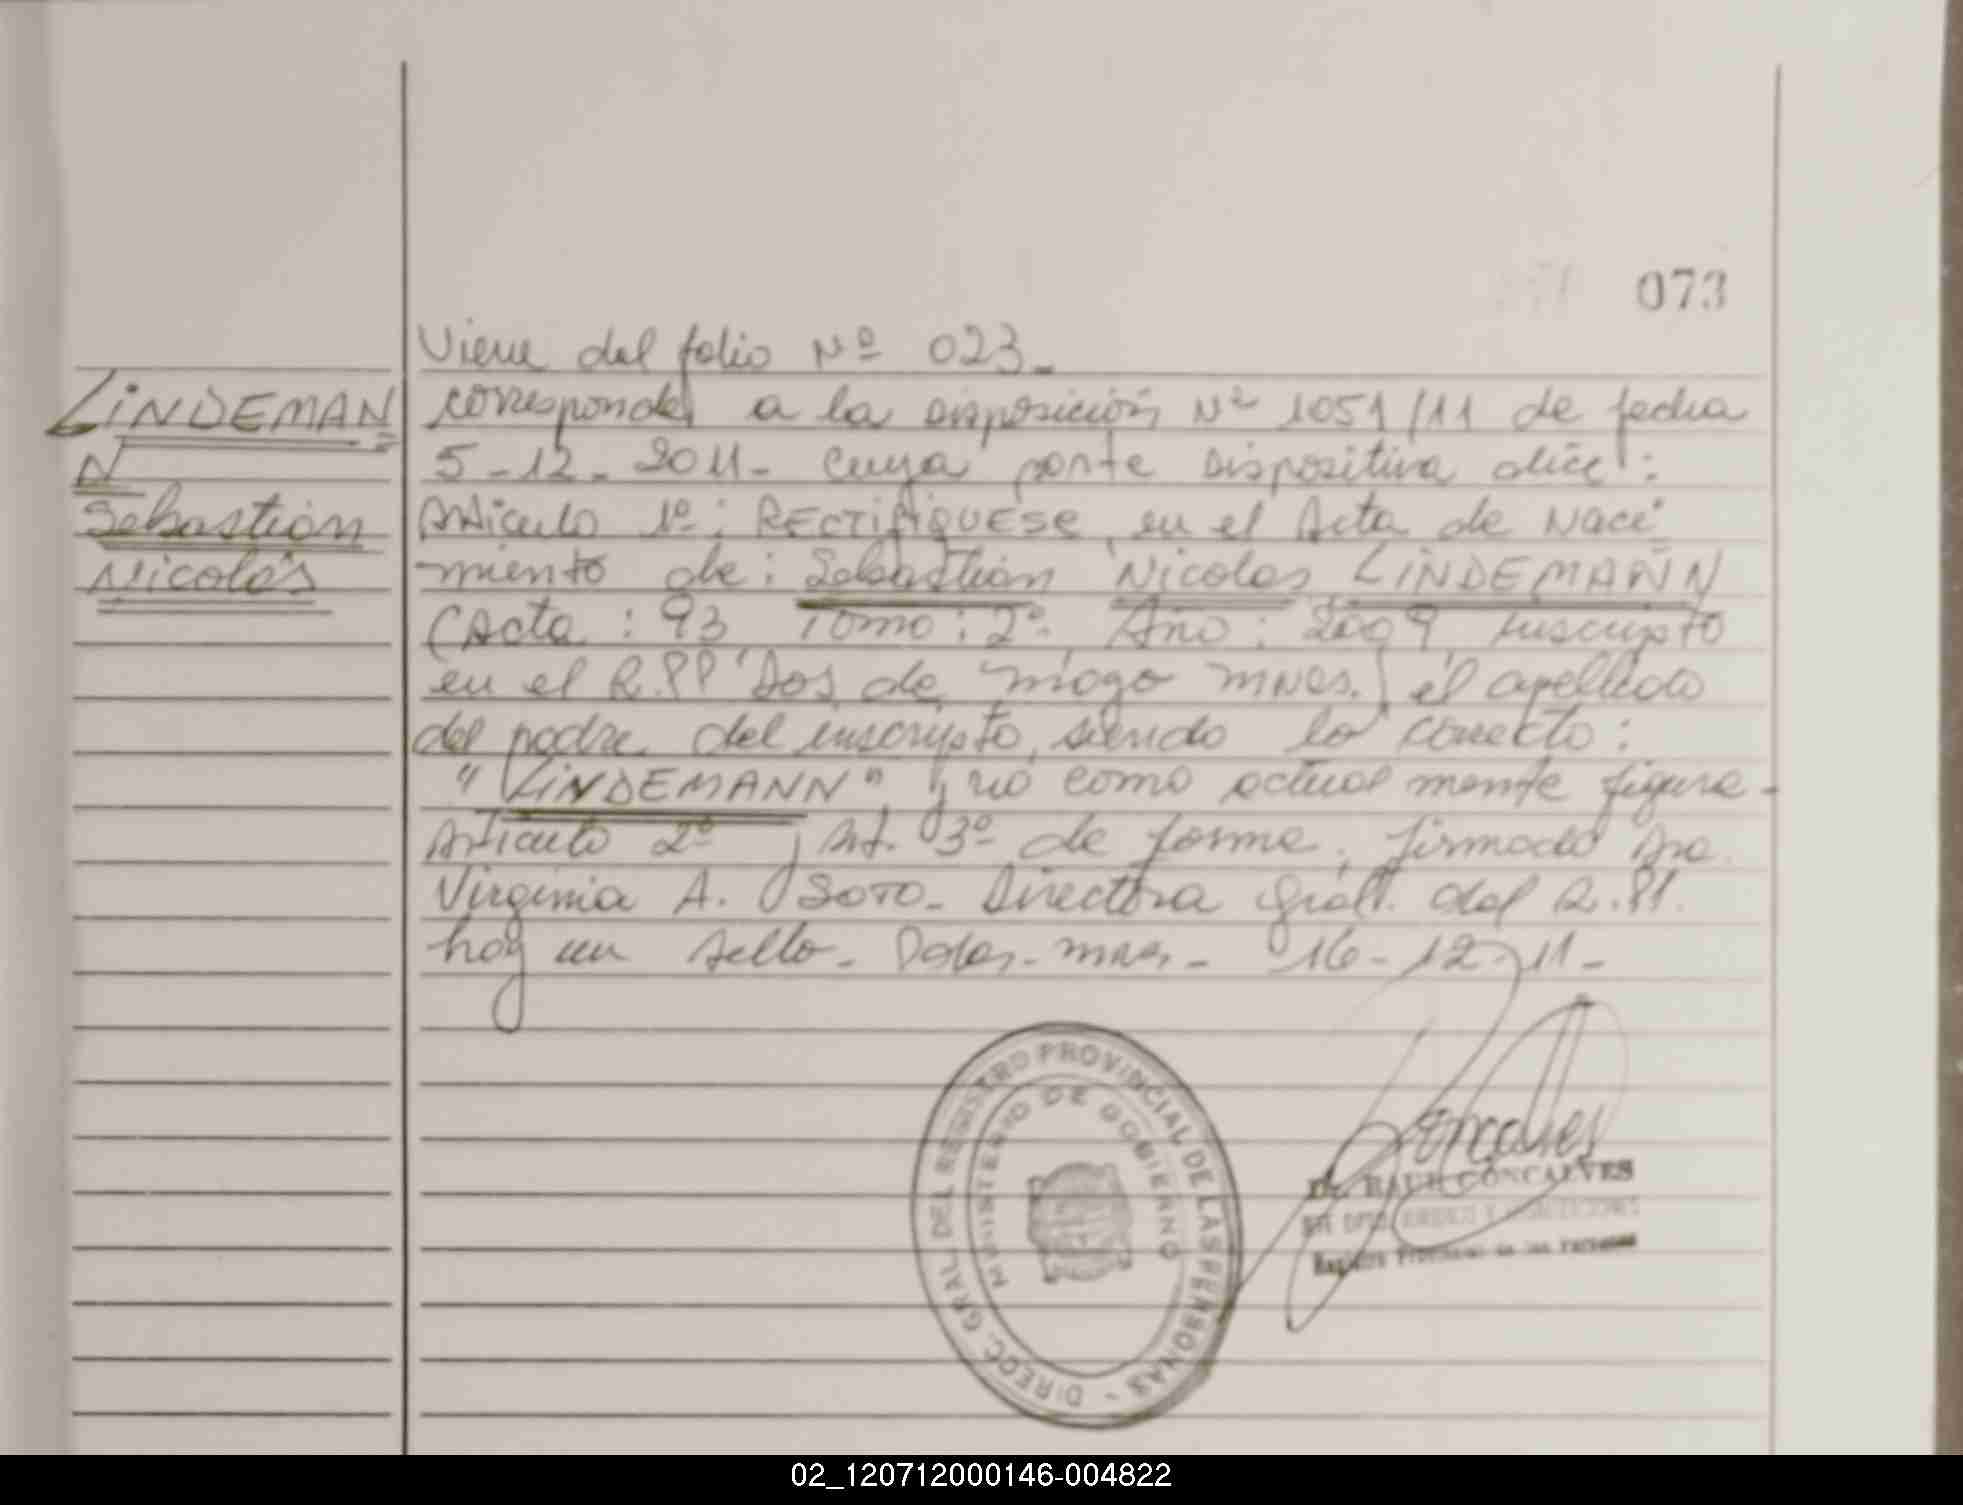 073
Viene del folio Nº 023_
LINDEMAN
corresponde a la Disposición Nº 1051/11 de fecha
N
5-12-2011- cuya parte Dispositiva dice:
Sebastián
Articulo 1º: RECTIFIQUESE, en el Acta de Naci
Nicolás
miento de: Sebastian Nicolas LINDEMANN
(Acta: 93 Tomo: 2º Año: 2009 Inscripto
en el R.PP Dos de Mayo MNES.) el apellido
del padre del inscripto, siendo lo correcto:
"LINDEMANN" y no como actual mente figura-
Articulo 2º y Art. 3º de forma. firmado Dra.
Virginia A. SOTO- Directora Gral. del R.PP.
hay un sello- Posadas- mnes- 16-12-11-
DIRECC. GRAL DEL REGISTRO PROVINCIAL DE LAS PERSONAS -
MINISTERIO DE GOBIERNO
Goncalves
Dr. RAUL GONCALVES
Registro Provincial de las Personas
02_120712000146-004822